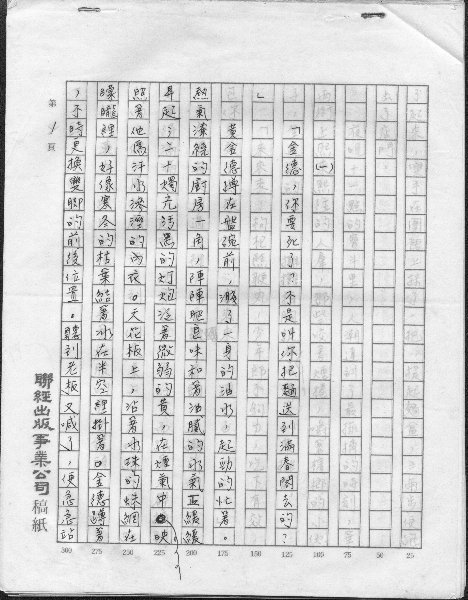 (一)
「金德,你要死了,不是叫你把麵送到滿春閣去的?
」
黃金德蹲在盤碗前,濺了一身的油水,起勁的忙著。
熱氣濛綠的廚房一角,陣陣肥皂味和著油膩的水氣正緩緩
昇起,二十燭光污黑的灯炮泛著微弱的黃,在煙氣中映
照著他為汗水浸溼的內衣。天花板上,沾著水珠的蛛網在
矇矓裡,好像寒冬的枯葉結著冰在半空裡掛著。金德蹲著
,不時更換雙腳的前後位置。聽到老板又喊了,便急急站
第1頁
聯經出版事業公司稿紙
300 275 250 225 200 175 150 125 100 75 50 25